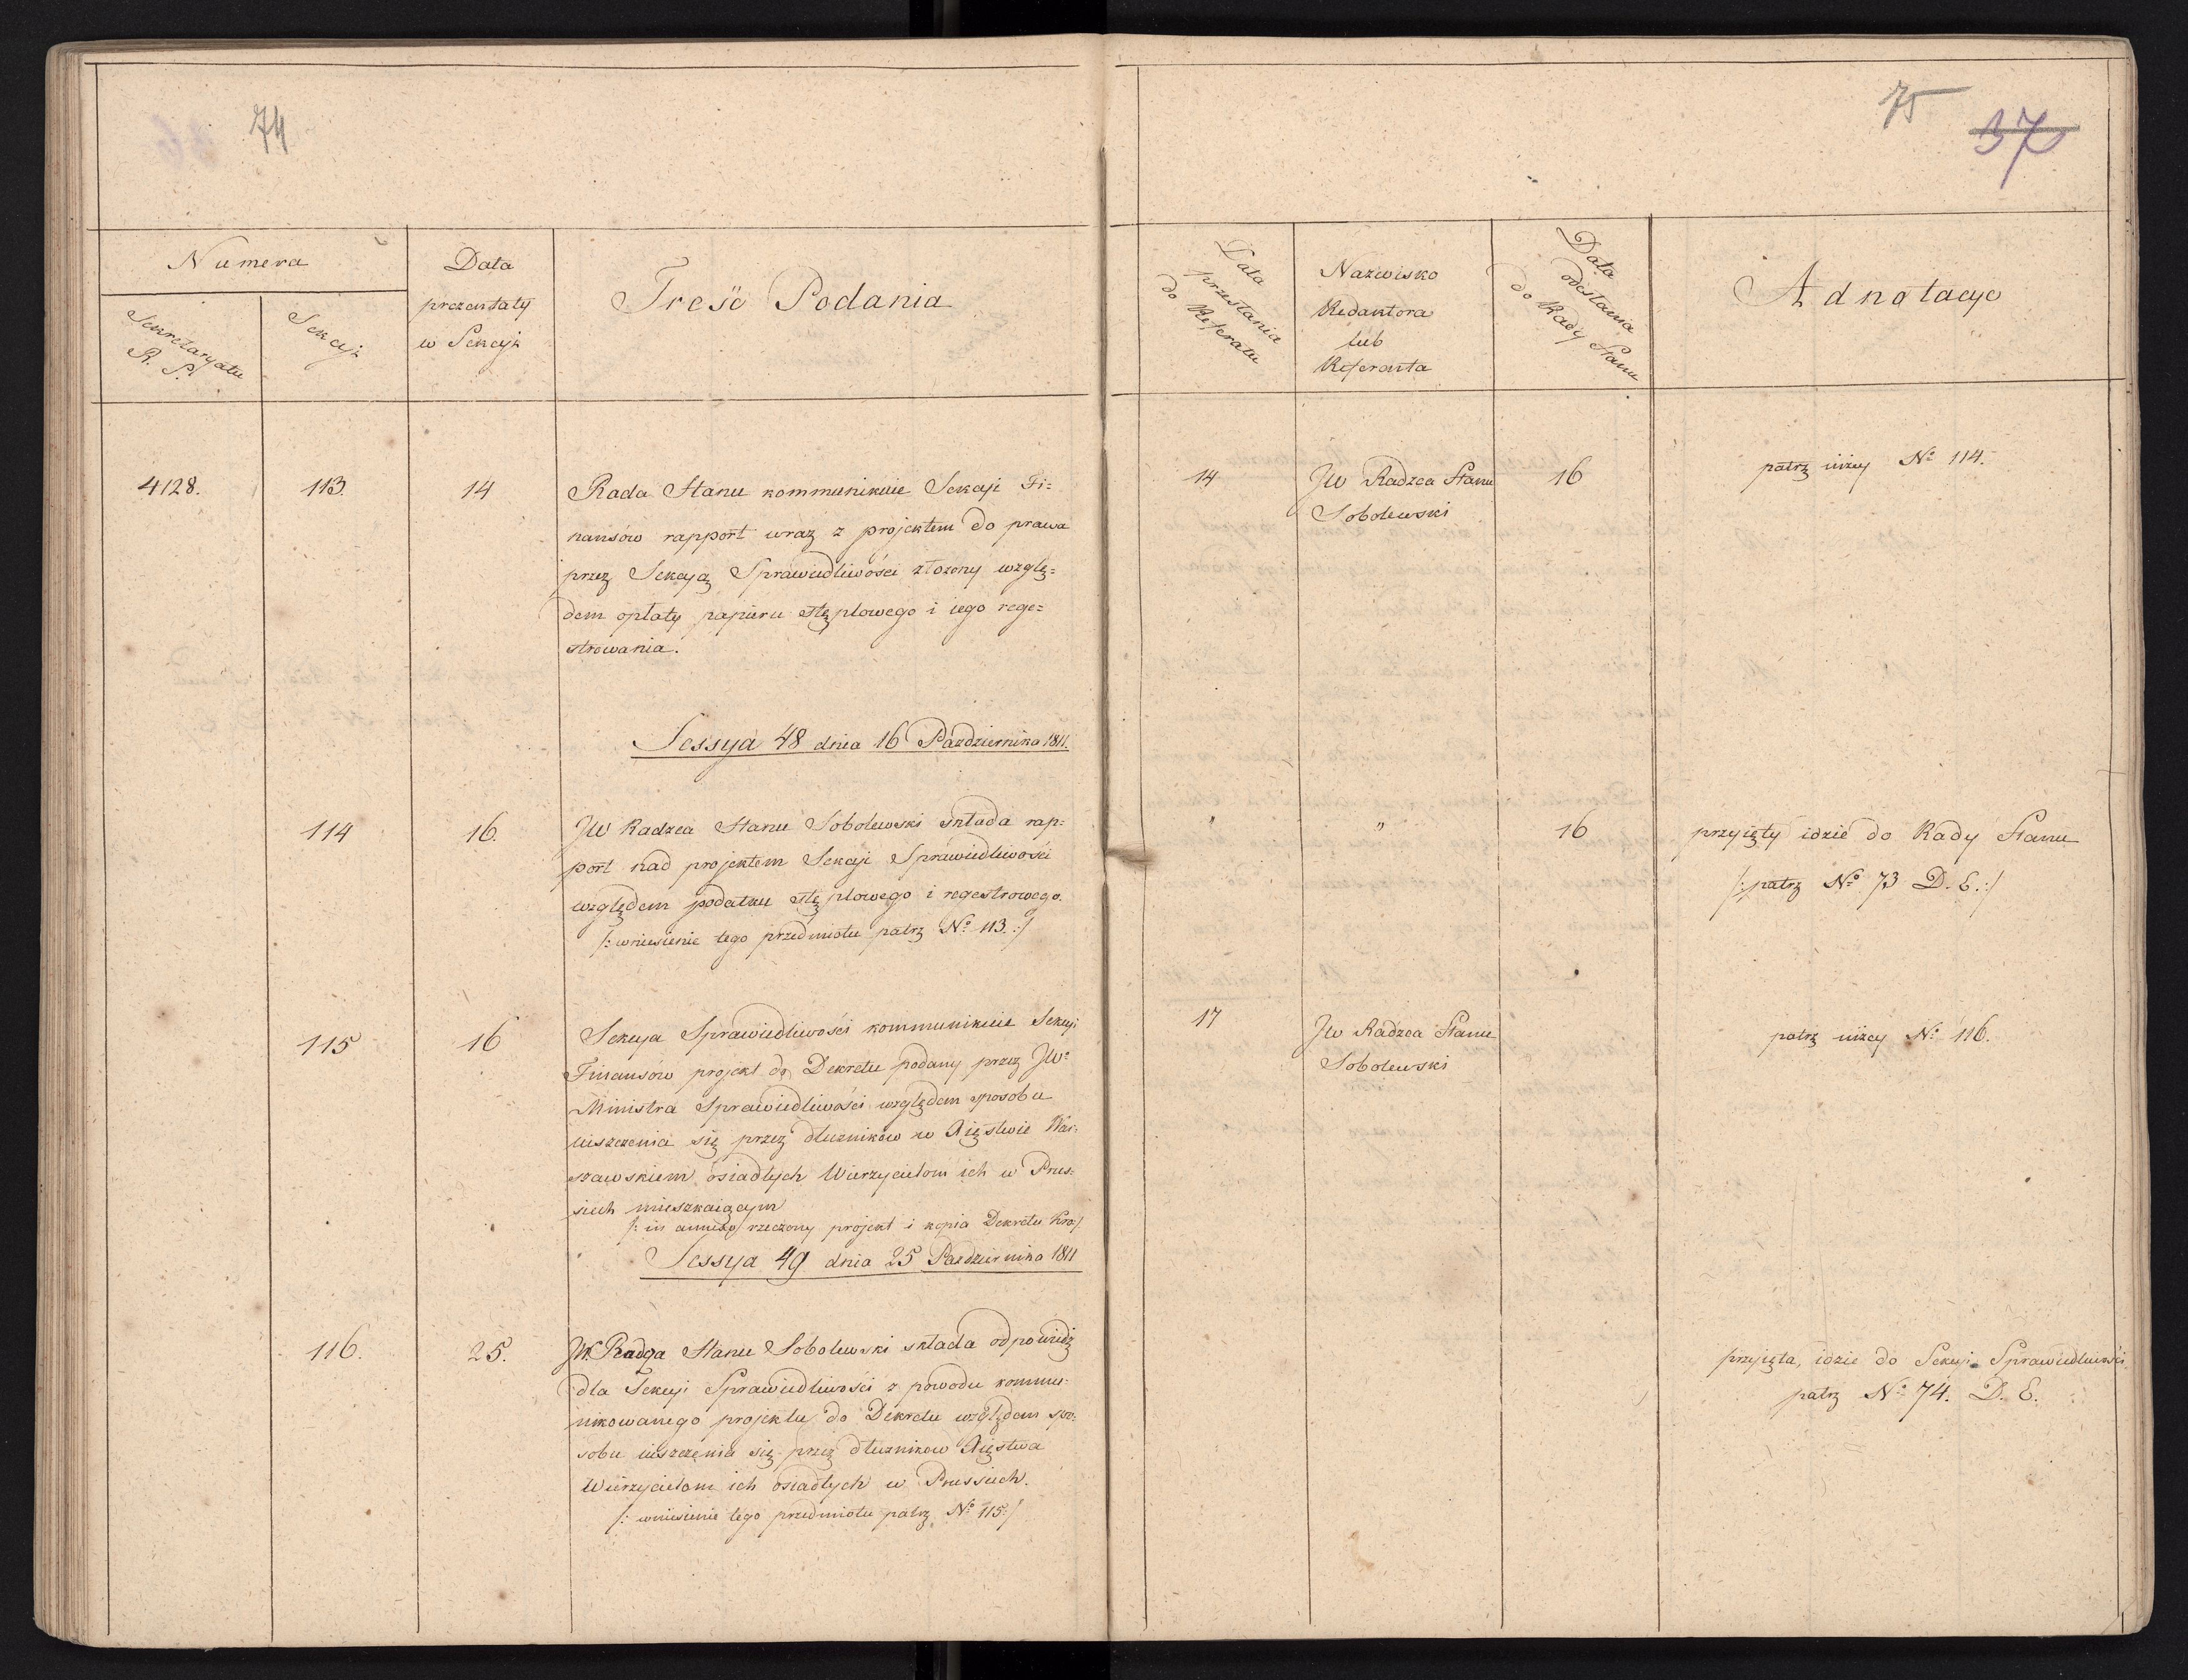 74
75
37
Numera
Sekretaryatu
R. S.
Sekcyi
Data
prezentaty
w Sekcyi
Treść Podania
Data
przesłania
do Referatu
Nazwisko
Redaktora
lub
Referenta
Data
odesłania
do Rady Stanu
Adnotacye
4128. 113. 14
Rada Stanu kommunikuie Sekcyi Fi=
nansów rapport wraz z projektem do prawa
przez Sekcyą Sprawiedliwości złożony wzglę=
dem opłaty papieru stęplowego i iego rege=
strowania.
14 JW Radzca Stanu 16 patrz niżey No 114.
Sobolewski
Sessya 48 dnia 16 Pazdziernika 1811.
114 16.
JW Radzca Stanu Sobolewski składa rap=
port nad projektem Sekcyi Sprawiedliwości
względem podatku stęplowego i regestrowego.
/: wniesienie tego przedmiotu patrz No 113. :/
" " 16 przyięty idzie do Rady Stanu
/: patrz No 73 D. E. :/
115 16
Sekcya Sprawiedliwości kommunikuie Sekcyi
Finansów projekt do Dekretu podany przez JWo
Ministra Sprawiedliwości względem sposobu
uiszczenia się przez dłużników w Xięstwie War=
szawskiem osiadłych Wierzycielom ich w Prus=
siech mieszkaiącym
/: in annexo rzeczony projekt i kopia Dekretu Kro:/
17 JW Radzca Stanu patrz niżey No 116.
Sobolewski
Sessya 49 dnia 25 Pazdziernika 1811
116. 25.
JW. Radca Stanu Sobolewski składa odpowiedź
dla Sekcyi Sprawiedliwości z powodu kommu=
nikowanego projektu do Dekretu względem spo=
sobu uiszczenia się przez dłużników Xięstwa
Wierzycielom ich osiadłych w Prussiech.
/: wniesienie tego przedmiotu patrz No 115 :/
przyięta, idzie do Sekcyi Sprawiedliwości
patrz No 74. D. E.